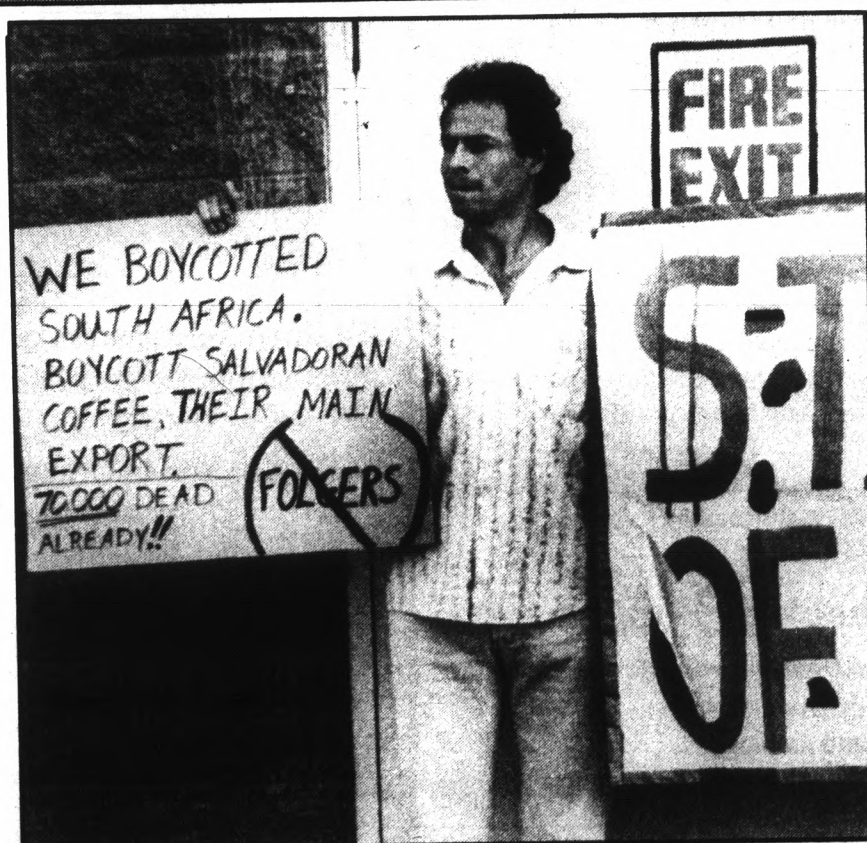 WE BOYCOTTED
SOUTH AFRICA.
BOYCOTT SALVADORAN
COFFEE, THEIR MAIN
EXPORT.
70,000 DEAD
ALREADY!!
FOLGERS
FIRE
EXIT
S.T.
OF